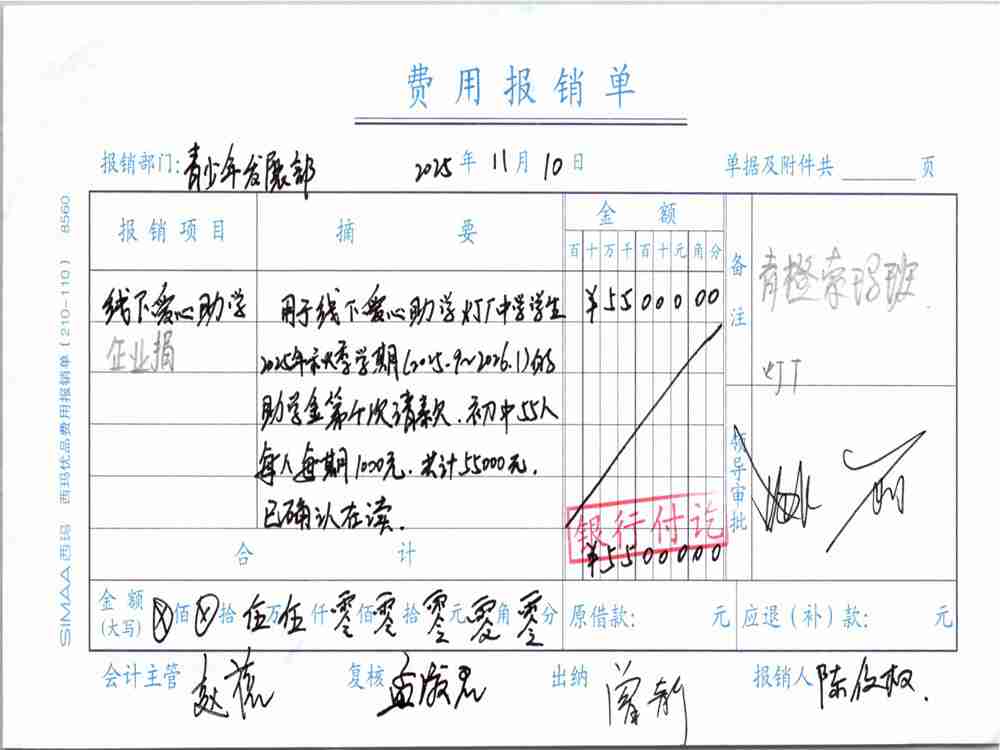 费用报销单
报销部门:青少年发展部 2025年11月10日 单据及附件共 页
报销项目 摘要 金额 备注
百十万千百十元角分
青橙索玛班.
线下爱心助学 用于线下爱心助学灯厂中学学生 ¥5500000
企业捐 2025年秋季学期(2025.9~2026.1)的
灯厂
助学金第个次请款.初中55人
每人每期1000元.共计55000元.
领导审批
已确认在读.
银行付讫
合计 ¥5500000
金额(大写) ⊗佰⊗拾伍万伍仟零佰零拾零元零角零分 原借款: 元 应退(补)款: 元
会计主管 赵 复核 孟 出纳 曾新 报销人 陈俊权.
SIMAA西玛 西玛优品费用报销单(210-110) 8560